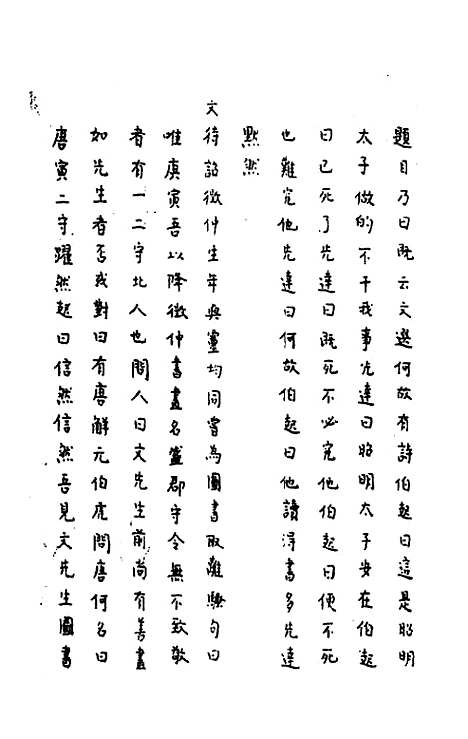 題目乃曰既云文選何故有詩伯起曰這是昭明
太子做的不干我事先達曰昭明太子安在伯起
曰已死了先達曰既死不必究他伯起曰便不死
也難究他先達曰何故伯起曰他讀得書多先達
默然
文待詔徵仲生年與靈均同嘗為圖書取離騷句曰
唯庚寅吾以降徵仲書畫名盛郡守令無不致敬
者有一二守北人也問人曰文先生前尚有善畫
如先生者否或對曰有唐解元伯虎問唐何名曰
唐寅二守躍然起曰信然信然吾見文先生圖書